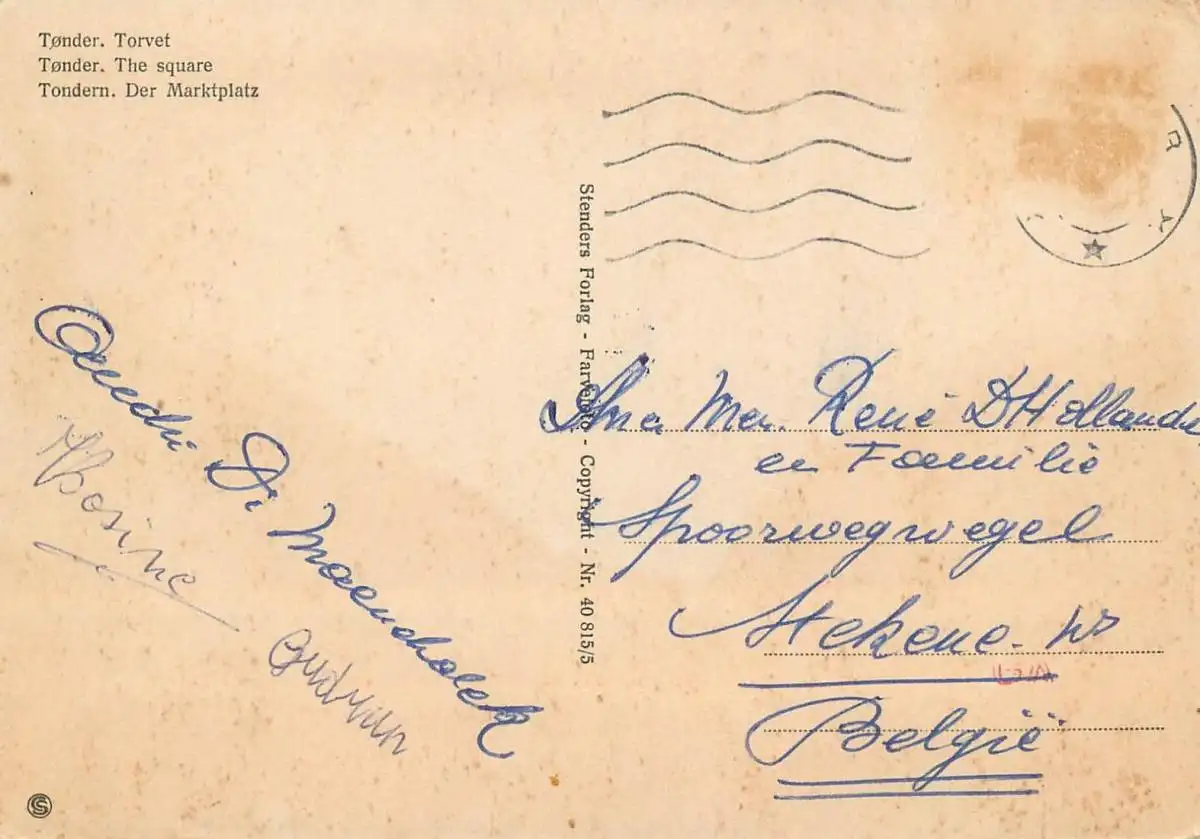 Tønder. Torvet
Tønder. The square
Tondern. Der Marktplatz
Stenders Forlag - Farvefoto - Copyright - Nr. 40 815/5
De Maencholek
Rosine
Gudrun
René D'Hollander
en Familie
Spoorwegwegel
Stekene
België